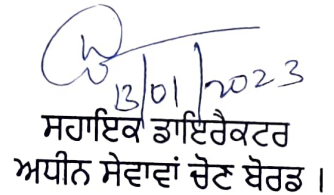 13/01/2023
ਸਹਾਇਕ ਡਾਇਰੈਕਟਰ
ਅਧੀਨ ਸੇਵਾਵਾਂ ਚੋਣ ਬੋਰਡ ।